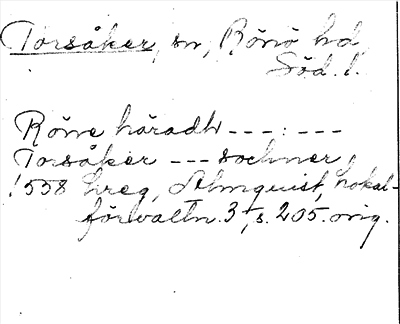 Torsåker, sn, Rönö hd,
Söd. l.
Röne häradh ---:---
Torsåker --- sochner,
1558 hreg, Almquist, Lokal-
förvaltn. 3, s. 205. orig.